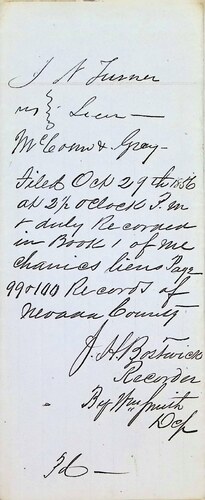 J N Turner
vs } Lien —
McConn & Gray —
Filed Oct 29th 1856
at 2½ oclock P.m
& duly Recorded
in Book 1 of me
chanics liens Page
99 & 100 Records of
Nevada County
J. H. Bostwick
Recorder
By Wm Smith
Dep
Pd —